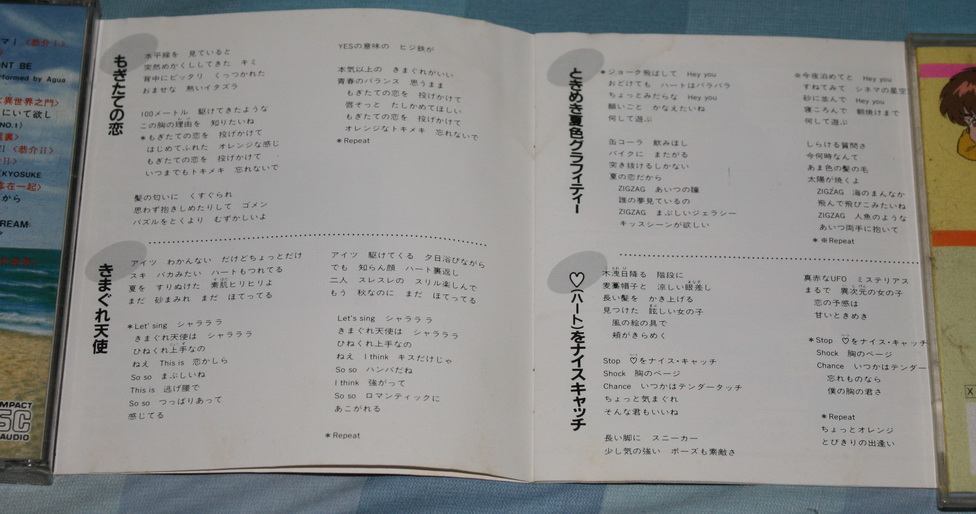 マ! 〈恭介I〉
ONT BE
erformed by Agua
異世界之門〉
にいて欲し
NO.1)
〈恭介II〉
KYOSUKE
在一起〉
から
REAM
COMPACT
DISC
AUDIO
もぎたての恋
水平線を 見ていると
突然めかくししてきた キミ
背中にピッタリ くっつかれた
おませな 熱いイタズラ
100メートル 駆けてきたような
この胸の理由を 知りたいね
*もぎたての恋を 投げかけて
はじめてふれた オレンジな感じ
もぎたての恋を 投げかけて
いつまでもトキメキ 忘れないで
髪の匂いに くすぐられ
思わず抱きしめたりして ゴメン
パズルをとくより むずかしいよ
YESの意味の ヒジ鉄が
本気以上の きまぐれがいい
青春のバランス 思うまま
もぎたての恋を 投げかけて
唇そっと たしかめてほしい
もぎたての恋を 投げかけて
オレンジなトキメキ 忘れないで
*Repeat
きまぐれ天使
アイツ わかんない だけどちょっとだけ
スキ バカみたい ハートもつれてる
夏を すりぬけた 素肌ヒリヒリよ
まだ 砂まみれ まだ ほてってる
*Let' sing シャラララ
きまぐれ天使は シャラララ
ひねくれ上手なの
ねえ This is 恋かしら
So so まぶしいね
This is 逃げ腰で
So so つっぱりあって
感じてる
アイツ 駆けてくる 夕日浴びながら
でも 知らん顔 ハート裏返し
二人 スレスレの スリル楽しんで
もう 秋なのに まだ ほてってる
Let'sing シャラララ
きまぐれ天使は シャラララ
ひねくれ上手なの
ねえ I think キスだけじゃ
So so ハンパだね
I think 強がって
So so ロマンティックに
あこがれる
*Repeat
ときめき夏色グラフィティー
*ジョーク飛ばして Hey you
おどけても ハートはバラバラ
ちょっとみだらな Hey you
願いごと かなえたいね
何して遊ぶ
缶コーラ 飲みほし
バイクに またがる
突き抜けるしかない
夏の恋だから
ZIGZAG あいつの瞳
誰の夢見ているの
ZIGZAG まぶしいジェラシー
キッスシーンが欲しい
※今夜泊めてと Hey you
すねてみて シネマの星空
砂に並んで Hey you
寝ころんで 朝焼けまで
何して遊ぶ
しらける質問さ
今何時なんて
あま色の髪の毛
太陽が焼くよ
ZIGZAG 海のまんなか
飛んで飛びこみたいね
ZIGZAG 人魚のような
あいつ両手に抱いて
*※Repeat
♡(ハート)をナイスキャッチ
木洩日降る 階段に
麦藁帽子と 涼しい眼差し
長い髪を かき上げる
見つけた 眩しい女の子
風の絵の具で
頬がきらめく
Stop ♡をナイス・キャッチ
Shock 胸のページ
Chance いつかはテンダータッチ
ちょっと気まぐれ
そんな君もいいね
長い脚に スニーカー
少し気の強い ポーズも素敵さ
真赤なUFO ミステリアス
まるで 異次元の女の子
恋の予感は
甘いときめき
*Stop ♡をナイス・キャッチ
Shock 胸のページ
Chance いつかはテンダー
忘れものなら
僕の胸の君さ
*Repeat
ちょっとオレンジ
とびきりの出逢い